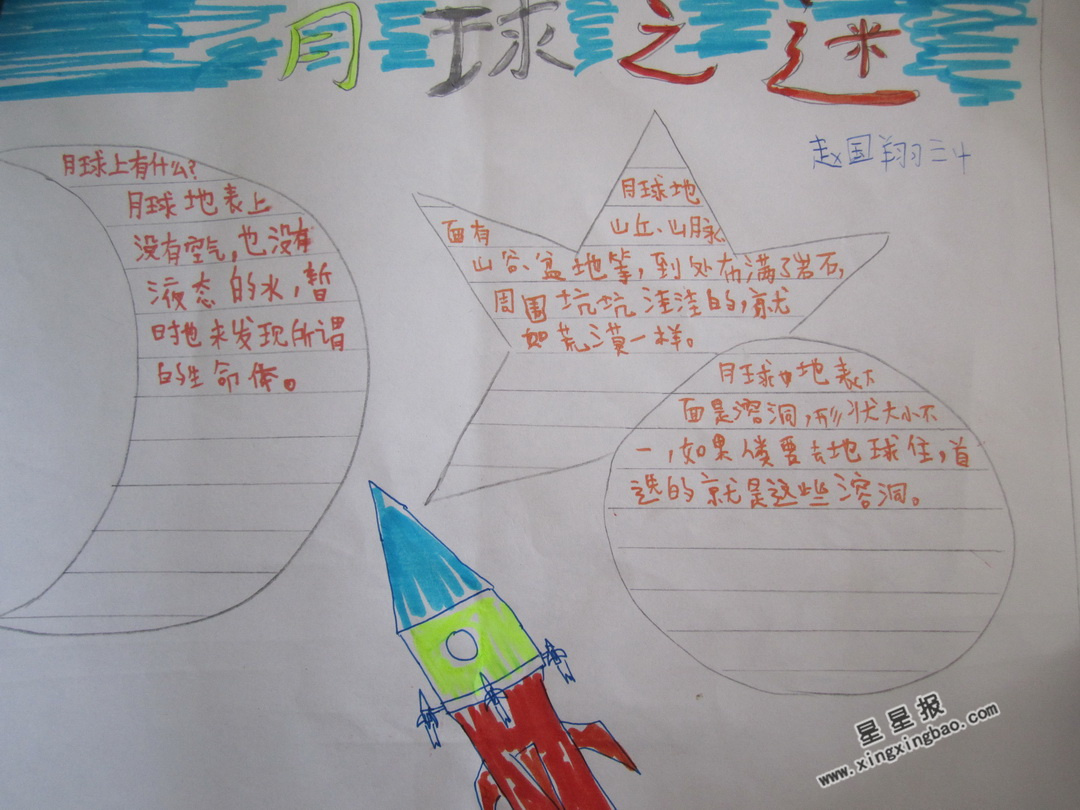 月球之迷
赵国翔三4
月球上有什么?
月球地表上
没有空气,也没有
液态的水,暂
时也未发现所谓
的生命体。
月球地
面有山丘、山脉、
山谷、盆地等,到处布满了岩石,
周围坑坑洼洼的,就
如荒漠一样。
月球地表下
面是溶洞,形状大小不
一,如果要去地球住,首
选的就是这些溶洞。
星星报
www.xingxingbao.com